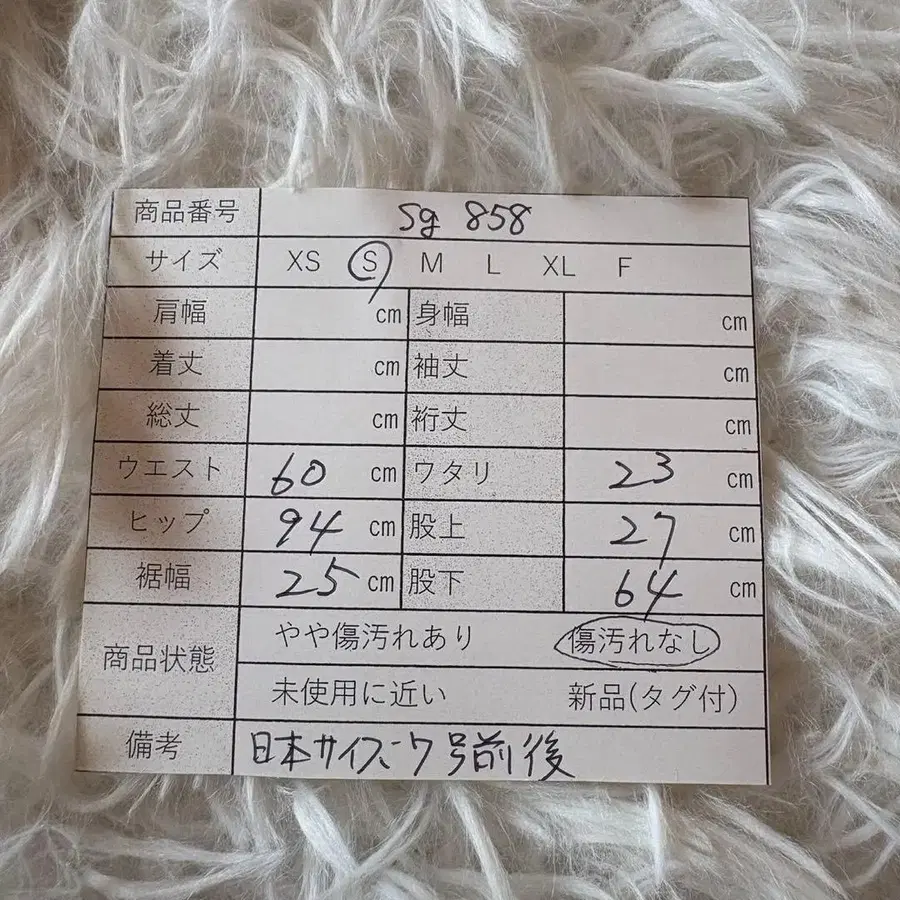 商品番号 Sg 858
サイズ XS S M L XL F
肩幅 cm 身幅 cm
着丈 cm 袖丈 cm
総丈 cm 裄丈 cm
ウエスト 60 cm ワタリ 23 cm
ヒップ 94 cm 股上 27 cm
裾幅 25 cm 股下 64 cm
商品状態 やや傷汚れあり 傷汚れなし
未使用に近い 新品(タグ付)
備考 日本サイズ 7号前後